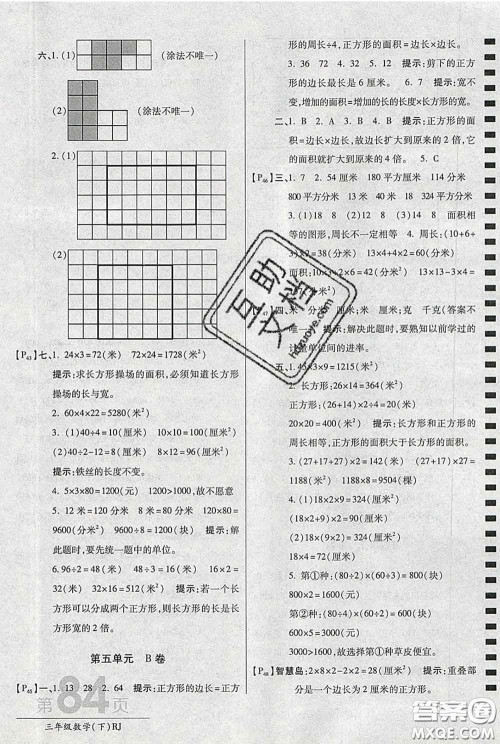 六、1. (1) (涂法不唯一)
(2) (涂法不唯一)
2. (1)
(2)
七、1. 24×3=72(米) 72×24=1728(米²)
提示:求长方形操场的面积，必须知道长方形
操场的长与宽。
2. 60×4×22=5280(米²)
3. (1)(40÷4=10(厘米) 10×10=100(厘米²)
(2)40÷2-12=8(厘米) 8×12=96(厘米²)
提示:铁丝的长度不变。
4. 5×3×80=1200(元) 1200>1000,故不愿意
5. 12米=120分米 8米=80分米 120×80=
9600(分米²) 9600÷8=1200(块) 提示:解
此题时,要先统一单位。
6. 96÷2=48(厘米) 48÷3=16(厘米) 16×2=
32(厘米) 32×16=512(厘米²) 提示:若一个长
方形可以分成两个正方形,则长方形的长是长
方形宽的2倍。
第五单元 B卷
一、1. 13 28 2. 64 提示:正方形的边长=正方
第84页
三年级数学(下)RJ
形的周长÷4,正方形的面积=边长×边长。
3. 36 72 4. 32 5. 36 提示:剪下的正方形
的边长最长是6厘米。 6. 7 提示:宽不
变,增加的面积=增加的长的长度×长方形的宽。
二、1. B 2. A 3. B 4. B 提示:正方形的面
积=边长×边长,故边长扩大到原来的2倍,它
的面积就扩大到原来的4倍。 5. C
三、1. 7 2. 54厘米 180平方厘米 114分米
800平方分米 13米 10平方米
3. (1)18 8 (2)12 8 (3)14 8 面积相
等的图形,周长不一定相等 4. 周长:(10+6+
3)×2=38(分米) (13+4)×2=34(厘米)
面积:10×3×2=42(分米²) 13×4×2=60(厘米²)
四、米 分米 厘米;米 克 千克(答案不
唯一) 提示:解决此题时,要预习以前学过的
计量单位间的进率。
五、1. 45×3×9=1215(米²)
2. 长方形:(26+14)×2=80(厘米)
正方形:20×4=80(厘米)
长方形:26×14=364(厘米²)
正方形:20×20=400(厘米²)
提示:长方形和正方形
的周长相等,正方形的面积大于长方形的面积。
3. (27+17+27)×2=1998(米²)
111×18=1998(米²) 1998×9=9584(棵)
4. (1)18×2×9=324(厘米²)
(2)(18×2+9)×2=90(厘米)
18×4=72(厘米)
5. 第①种:(80÷2)×(60÷3)=800(块)
800×2=1600(元)
第②种:(80÷2)×(60÷2)=1200(块)
3000>1600,故选择第①种草皮便宜。
智慧岛:2×8×2-2×2=28(厘米²) 提示:重叠部
分是一个边长为2厘米的正方形。
互助文档
hdzuoye.com
答案圈
MXQE.COM